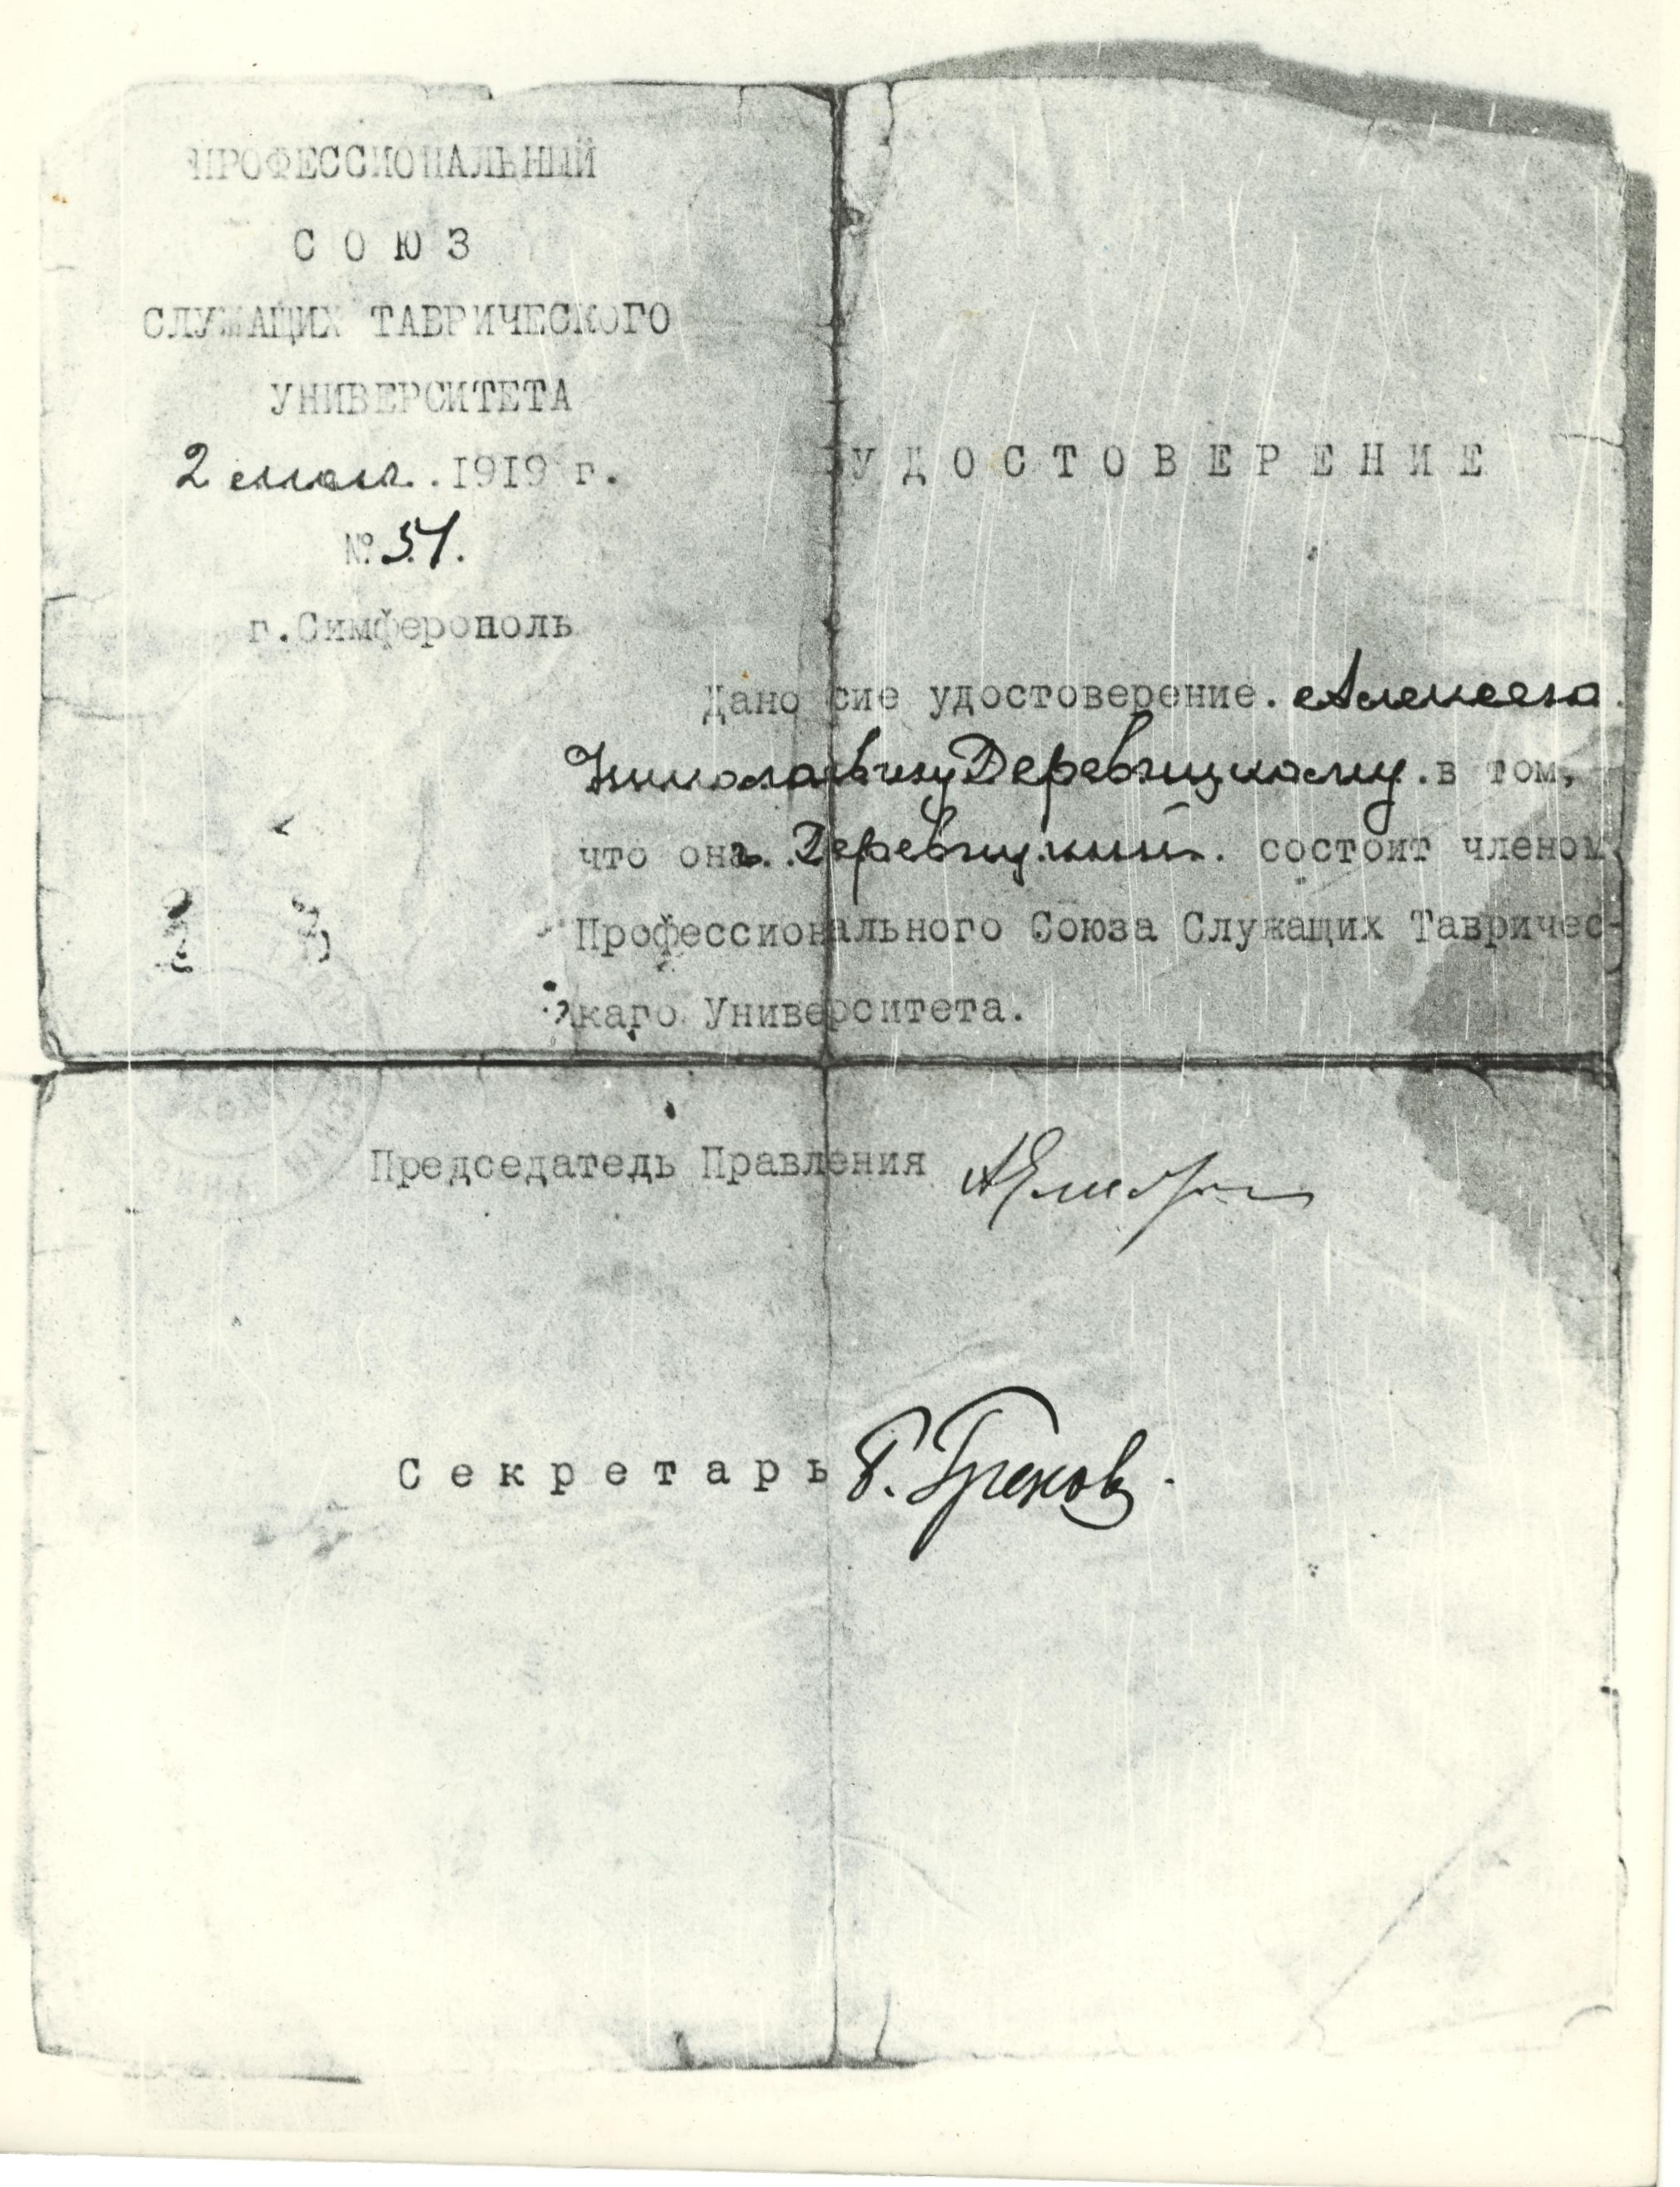 ПРОФЕССИОНАЛЬНЫЙ
СОЮЗ
СЛУЖАЩИХ ТАВРИЧЕСКОГО
УНИВЕРСИТЕТА
2 мая. 1919 г.
№ 51.
г.Симферополь
УДОСТОВЕРЕНИЕ
Дано сие удостоверение. Алексею
Николаевичу Деревицкому. в том,
что онъ. Деревицкий. состоит членом
Профессионального Союза Служащих Тавричес-
каго Университета.
Председатедь Правления
Секретарь Б. Греков.